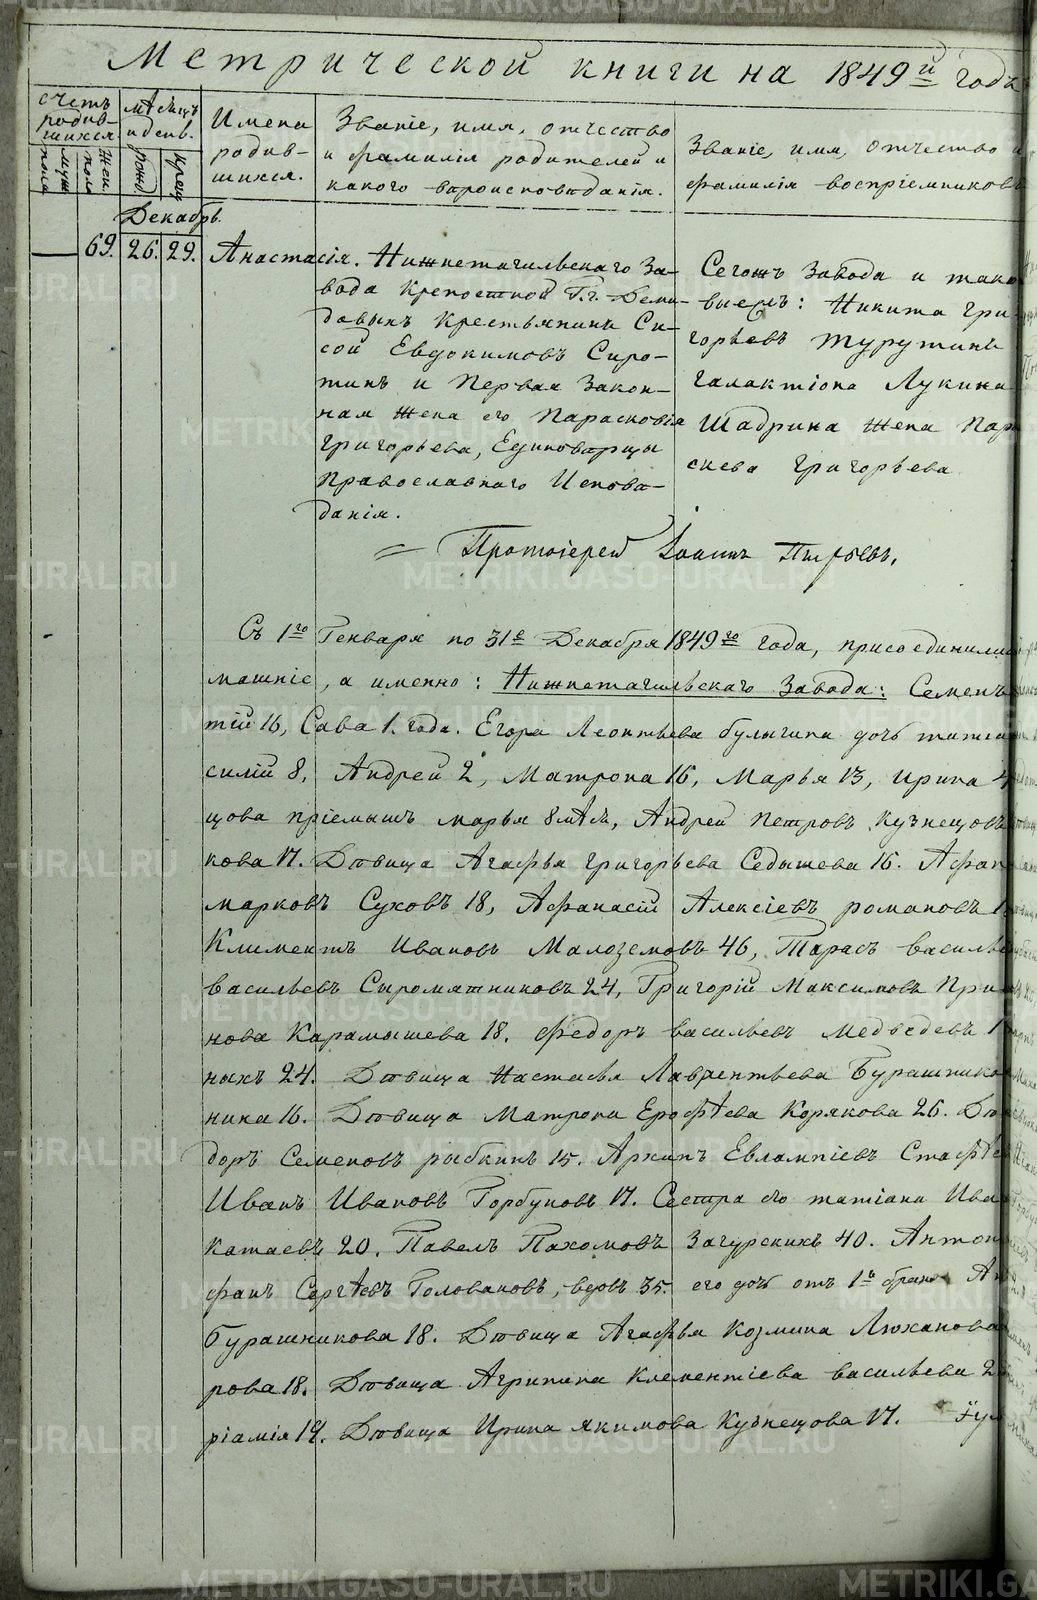 Метрической книги на 1849й годъ
счетъ родив-
шихся.
муж. пола
жен. пола
мѣсяцъ и ден.
рожд.
крещ.
Имена
родив-
шихся.
Званіе, имя, отчество
и фамилія родителей и
какого вѣроисповѣданія.
Званіе, имя, отчество и
фамилія воспріемниковъ
Декабрь.
69. 26. 29. Анастасія.
Нижнетагильскаго За-
вода крепостной Г.г. Деми-
довыхъ крестьянинъ Си-
сой Евдокимовъ Сиро-
тинъ и Первая Закон-
ная жена его Парасковія
Григорьева, Единоверцы
Православнаго Испове-
данія.
Сегожъ Завода и тако-
выежъ: Никита Гри-
горьевъ Турутинъ
Галактіона Лукина
Шадрина жена Пар
скева Григорьева
Протоіерей Іоаннъ Пырьевъ.
Съ 1го Генваря по 31е Декабря 1849го года, присоединились
машніе, а именно: Нижнетагильскаго Завода: Семенъ
тій 16, Сава 1. года. Егора Леонтьева булыгина дочь татіа
силій 8, Андрей 2, Матрона 16, Марья 13, Ирина 4
цова пріемышъ марья 8 мѣс, Андрей Петровъ Кузнецовъ
кова 17. Дѣвица Агафья Григорьева Седышева 16. Афан
марковъ Суховъ 18, Афанасій Алексіевъ романовъ 1
Климентъ Ивановъ Малоземовъ 46, Тарасъ васильев
васильевъ Сыромятниковъ 24, Григорій Максимовъ При
нова Карамышева 18. Федоръ васильевъ Медведевъ 1
ныхъ 24. Дѣвица Настасья Лаврентьева Бурашнико
ника 16. Дѣвица Матрона Ерофѣева Корякова 26. Дѣ
доръ Семеновъ рыбкинъ 15. Архипъ Евлампіевъ Стафѣе
Иванъ Ивановъ Горбуновъ 17. Сестра его татіана Ива
катаевъ 20. Павелъ Пахомовъ Загурскихъ 40. Антон
фанъ Сергѣевъ Головановъ, вдовъ 35. его дочь отъ 1го брака Ан
бурашникова 18. Дѣвица Агафья Козмина Люханова
рова 18. Дѣвица Агрипина Клементіева васильева 2
ріамія 19. Дѣвица Ирина якимова Кузнецова 17.
METRIKI.GASO-URAL.RU